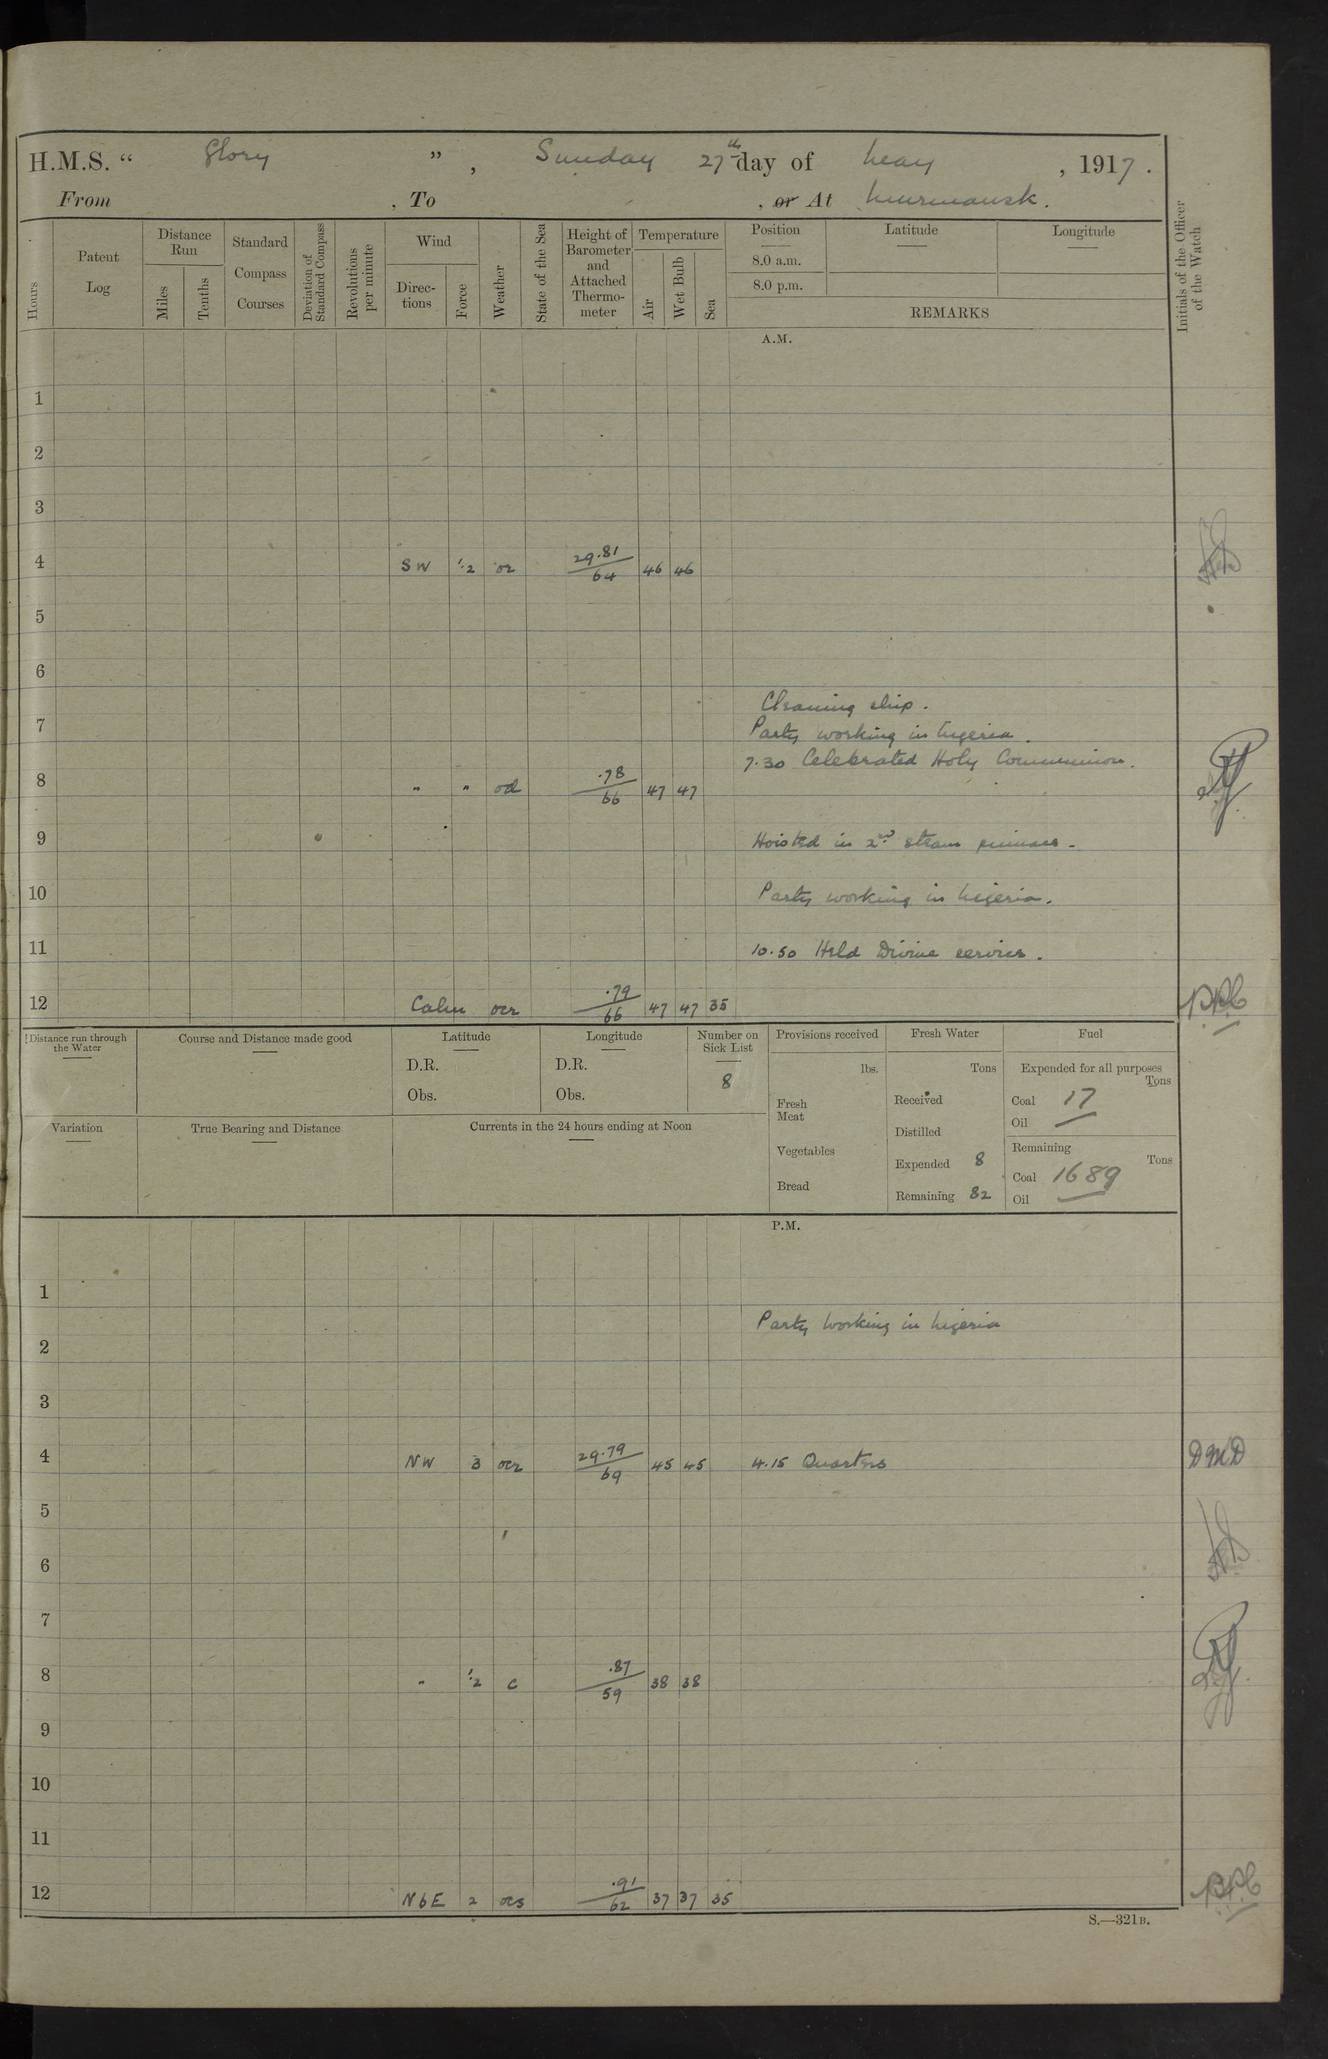 H.M.S. “ Glory ” , Sunday 27th day of May , 1917 .
From , To , or At Murmansk .
Hours
Patent Log
Distance Run
Miles
Tenths
Standard Compass Courses
Deviation of Standard Compass
Revolutions per minute
Wind
Directions
Force
Weather
State of the Sea
Height of Barometer and Attached Thermometer
Temperature
Air
Wet Bulb
Sea
Position
8.0 a.m.
8.0 p.m.
Latitude
Longitude
REMARKS
Initials of the Officer of the Watch
A.M.
1
2
3
4 SW 1.2 or 29.81 / 64 46 46
5
6
Cleaning ship.
7 Party working in Nigeria.
7.30 Celebrated Holy Communion.
8 " " od .78 / 66 47 47
9 Hoisted in 2nd steam pinnace.
10 Party working in Nigeria.
11 10.50 Held Divine service.
12 Calm ocr .79 / 66 47 47 35
Distance run through the Water
Course and Distance made good
Latitude
D.R.
Obs.
Longitude
D.R.
Obs.
Number on Sick List
8
Provisions received
lbs.
Fresh Meat
Vegetables
Bread
Fresh Water
Tons
Received
Distilled
Expended 8
Remaining 82
Fuel
Expended for all purposes
Tons
Coal 17
Oil —
Remaining
Tons
Coal 1689
Oil —
Variation
True Bearing and Distance
Currents in the 24 hours ending at Noon
P.M.
1
Party working in Nigeria
2
3
4 NW 3 ocr 29.79 / 69 45 45 4.15 Quarters DMD
5
6
7
8 " 1.2 c .87 / 59 38 38
9
10
11
12 NbE 2 ocs .91 / 62 37 37 35
S.—321B.